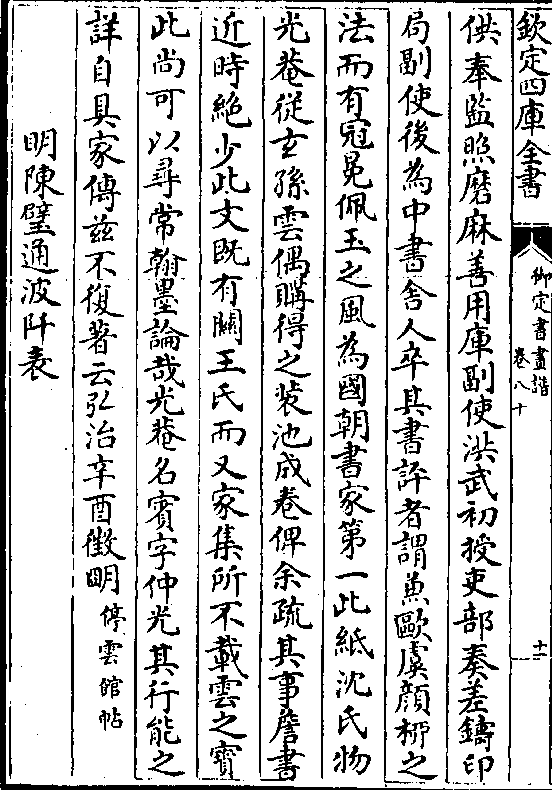 欽定四庫全書
御定書畫譜
卷八十
十一
供奉監照磨麻善用庫副使洪武初授吏部奏差鑄印
局副使後為中書舍人卒其書評者謂兼歐虞顔栁之
法而有冠冕佩玉之風為國朝書家第一此紙沈氏物
光菴從𤣥孫雲偶購得之裝池成卷俾余疏其事詹書
近時絶少此文既有闗王氏而又家集所不載雲之寳
此尚可以尋常翰墨論哉光菴名賓字仲光其行能之
詳自具家傳兹不復著云弘治辛酉徵明停雲館帖
明陳璧通波阡表